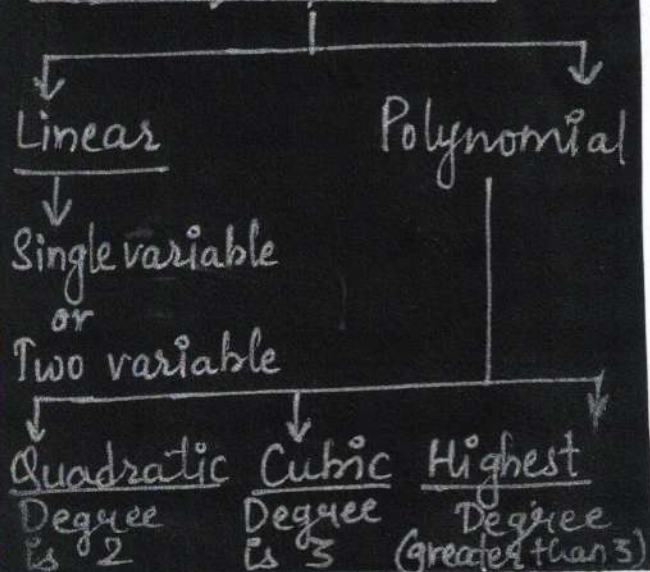 Linear
Polynomial
Single variable
or
Two variable
Quadratic
Degree
is 2
Cubic
Degree
is 3
Highest
Degree
(greater than 3)